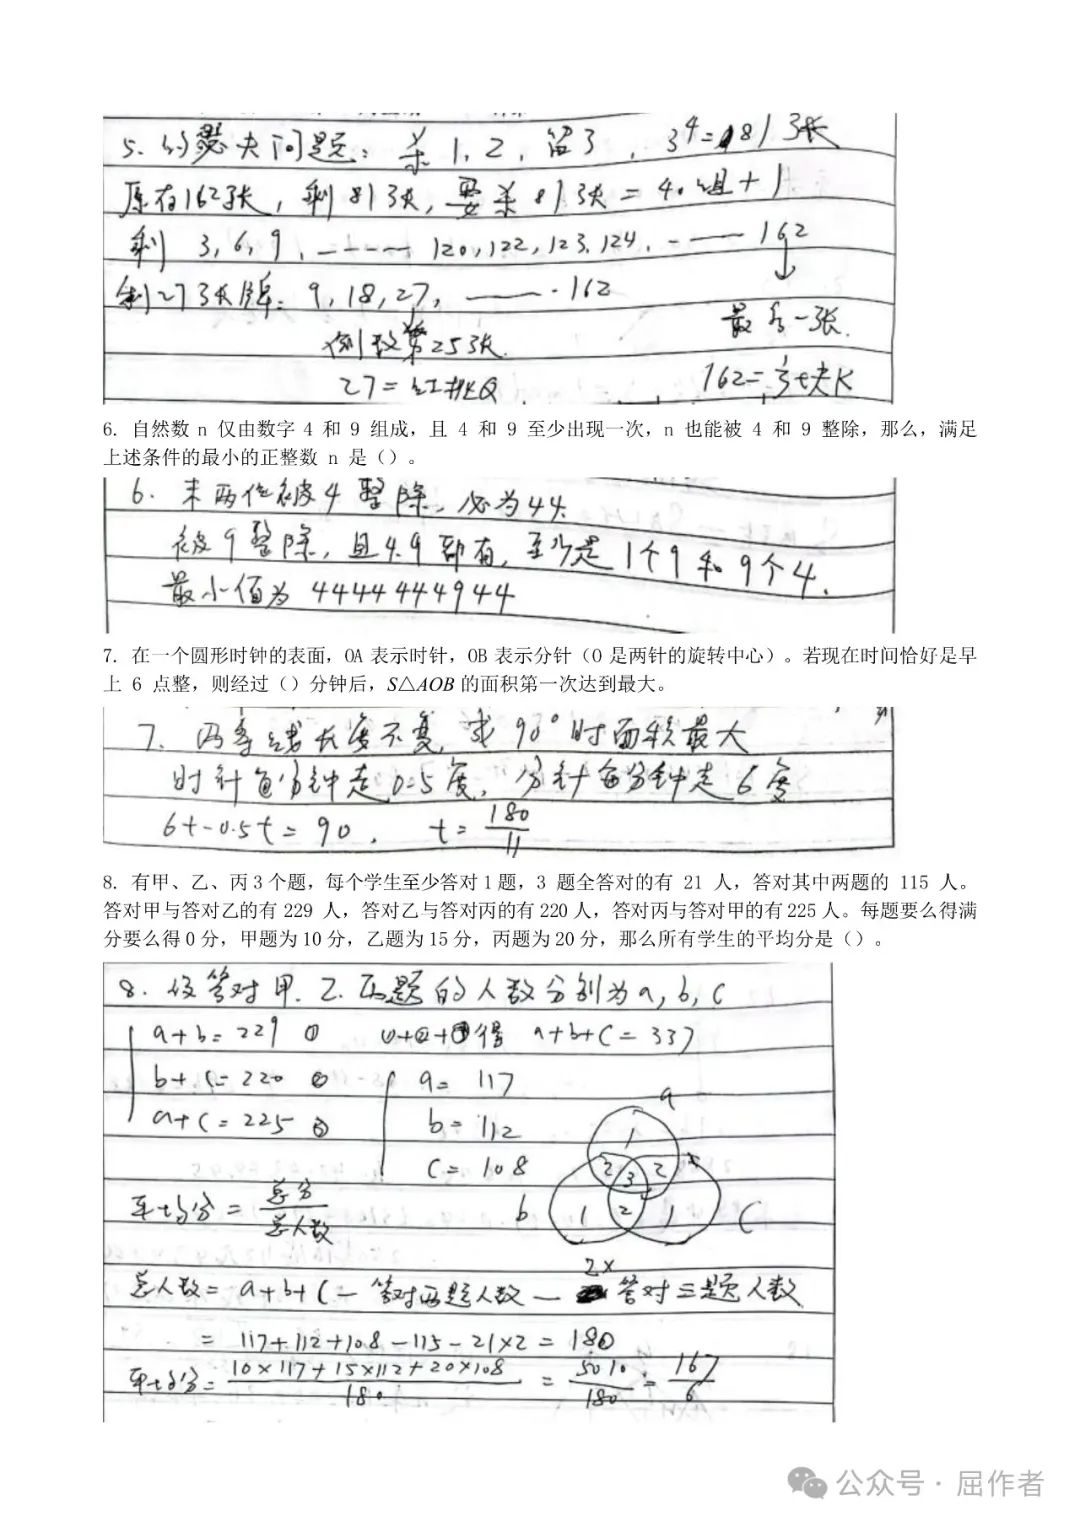 5. 约瑟夫问题: 杀1,2, 留3, 3⁴=81张
原有162张, 剩81张, 要杀81张=40组+1
剩 3,6,9, …… 120,122,123,124, …… 162
剩27张牌: 9,18,27, …… 162
最后一张.
倒数第25张
27=红桃Q
162=方块K
6. 自然数 n 仅由数字 4 和 9 组成，且 4 和 9 至少出现一次，n 也能被 4 和 9 整除，那么，满足
上述条件的最小的正整数 n 是（）。
6. 末两位被4整除, 必为44.
被9整除, 且4.9都有, 至少是1个9和9个4.
最小值为4444444944
7. 在一个圆形时钟的表面，OA 表示时针，OB 表示分针（O 是两针的旋转中心）。若现在时间恰好是早
上 6 点整，则经过（）分钟后，S△AOB 的面积第一次达到最大。
7. 两条线长度不变, 成90°时面积最大
时针每分钟走0.5度, 分针每分钟走6度
6t-0.5t=90, t=180/11
8. 有甲、乙、丙3个题，每个学生至少答对1题，3 题全答对的有 21 人，答对其中两题的 115 人。
答对甲与答对乙的有229 人，答对乙与答对丙的有220人，答对丙与答对甲的有225人。每题要么得满
分要么得0分，甲题为10分，乙题为15分，丙题为20分，那么所有学生的平均分是（）。
8. 设答对甲.乙.丙题的人数分别为a,b,c
a+b=229 ① ①+②+③得 a+b+c=337
b+c=220 ② a=117
a+c=225 ③ b=112
c=108
a
1
2 3 2
b 1 2 1 C
平均分=总分/总人数
总人数=a+b+c-答对两题人数-2×答对三题人数
=117+112+108-115-21×2=180
平均分=(10×117+15×112+20×108)/180=5010/180=167/6
公众号·屈作者